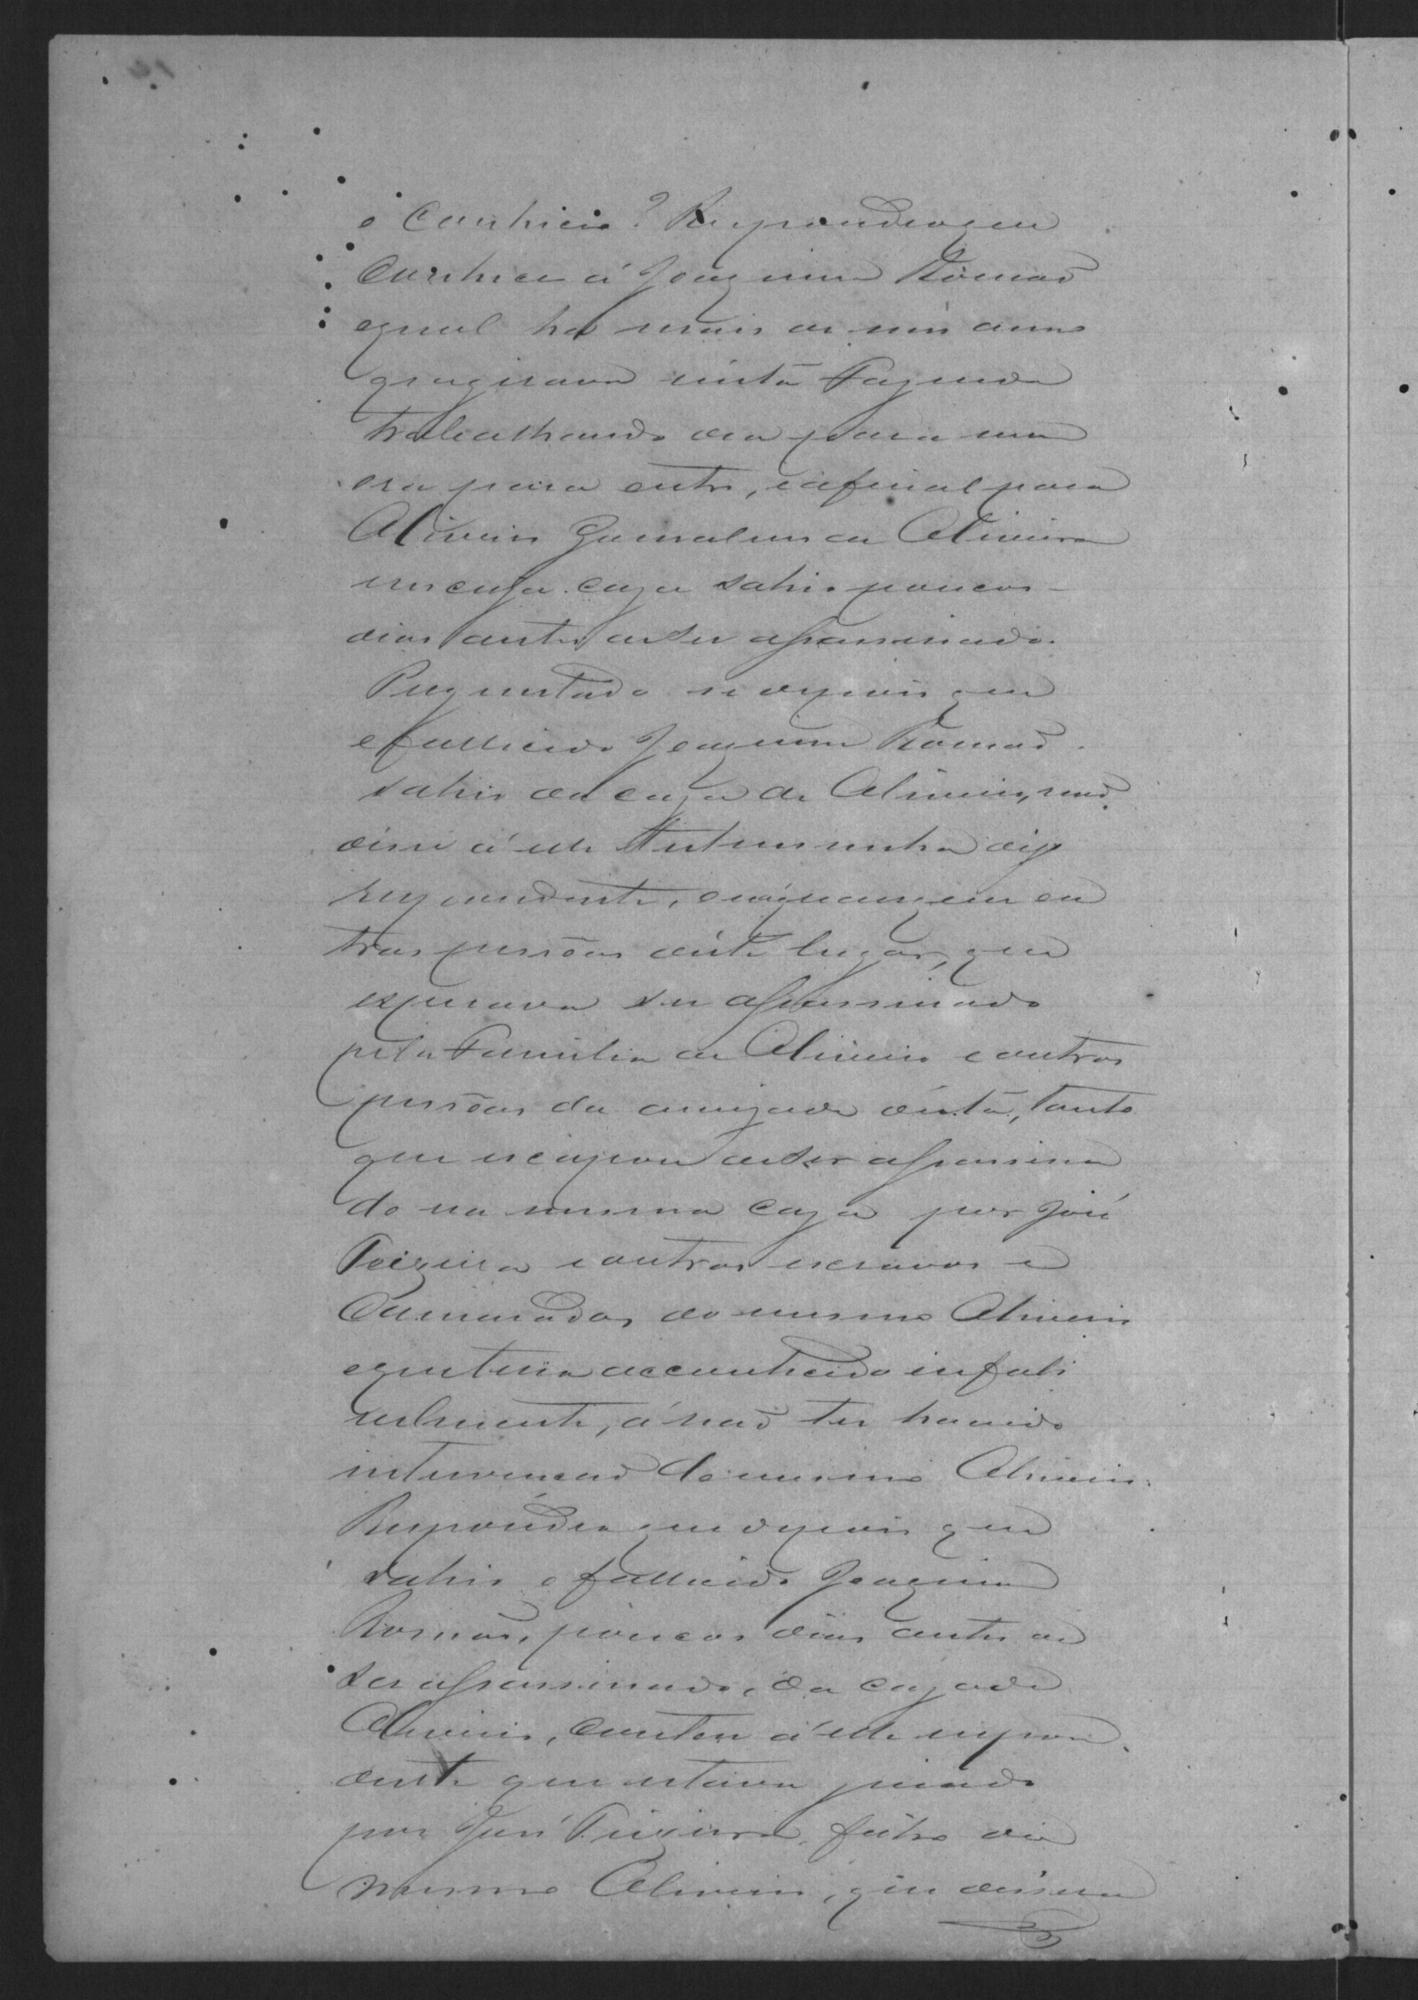 o conhecia? Respondeo que
conhece á Joaquim Romaõ
o qual ha mais de um anno
que girava nésta Fazenda
trabalhando ora para um
ora para outro, e afinal para
Oliverio Gonsalves de Oliveira
em cuja caza sahio poucos
dias antes de ser assassinado.
Preguntado se depois que
o fallecido Joaquim Romaõ
sahio da caza de Oliverio, naõ
disse á elle Testemunha digo
respondente, e a quaesquer ou
tras pessõas déste lugar, que
esperava ser assassinado
pela Familia de Oliverio e outras
pessõas da amizade désta, tanto
que escapou de ser assassina
do na mesma caza por José
Teixeira e outros escravos e
Camaradas do mesmo Oliverio
o que teria acconticido infali
velmente, á naõ ter havido
intervencaõ do mesmo Oliverio.
Respondeo que depois que
sahio o fallecido Joaquim
Romaõ, poucos dias antes de
ser assassinado, da caza de
Oliverio, contou á elle respon
dente que estava jurado
por José Teixeira, feitor do
mesmo Oliverio, que dissera